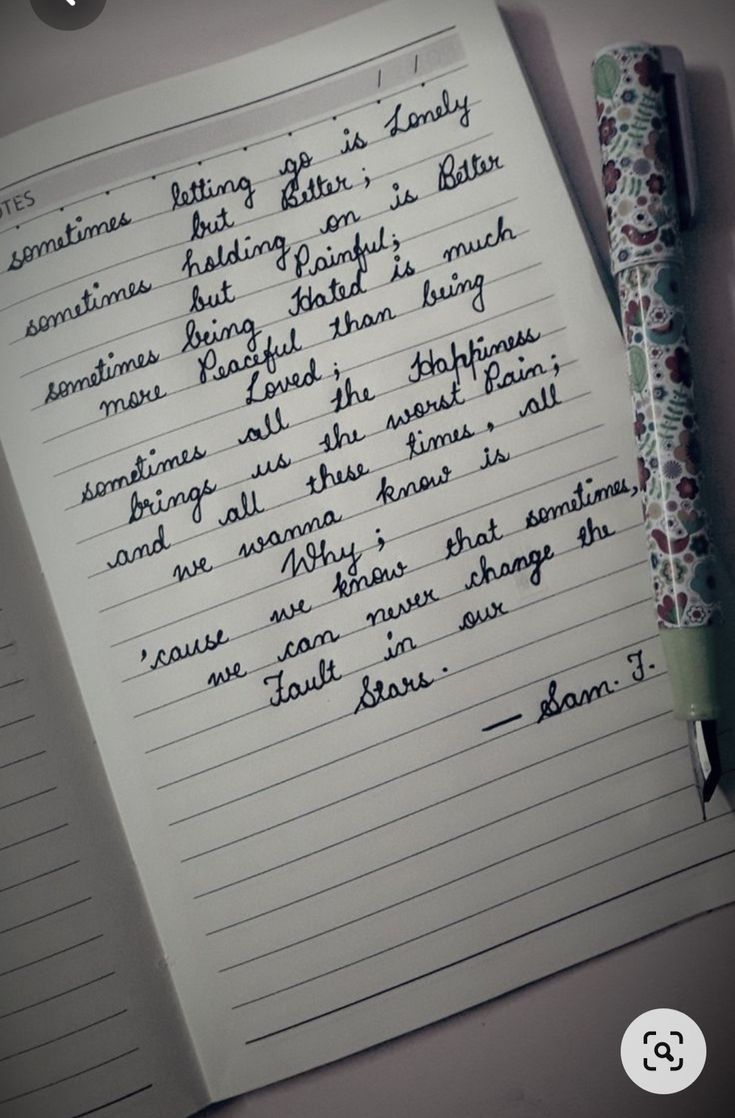 / /
OTES
sometimes letting go is Lonely
but Better;
sometimes holding on is Better
but Painful;
sometimes being Hated is much
more Peaceful than being
Loved;
sometimes all the Happiness
brings us the worst Pain;
and all these times, all
we wanna know is
Why;
'cause we know that sometimes,
we can never change the
Fault in our
Stars.
— Sam. F.